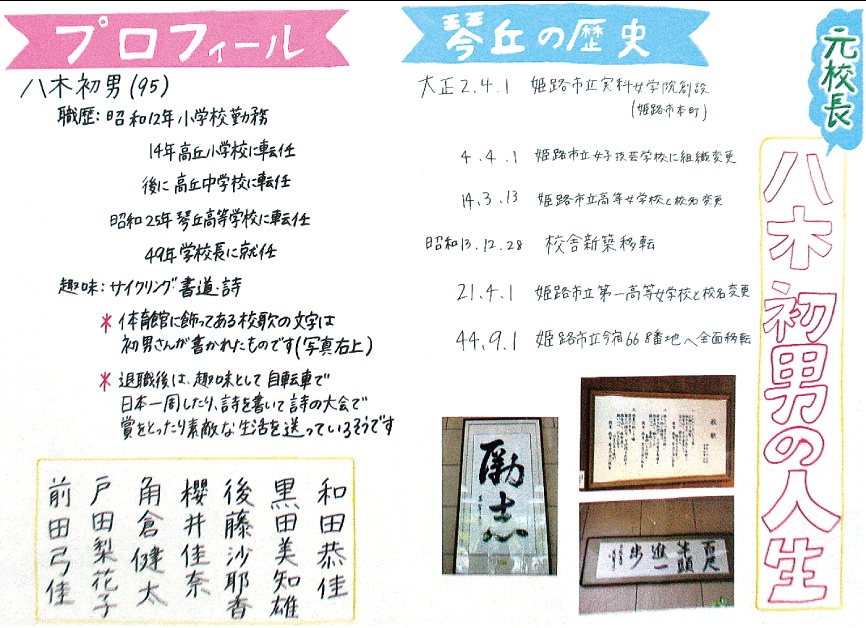 元校長
八木初男の人生
プロフィール
八木初男(95)
職歴:昭和12年小学校勤務
14年高丘小学校に転任
後に高丘中学校に転任
昭和25年琴丘高等学校に転任
49年学校長に就任
趣味:サイクリング 書道・詩
* 体育館に飾ってある校歌の文字は
初男さんが書かれたものです(写真右上)
* 退職後は、趣味として自転車で
日本一周したり、詩を書いて詩の大会で
賞をとったり素敵な生活を送っているそうです
琴丘の歴史
大正2.4.1 姫路市立実科女学院創設
(姫路市本町)
4.4.1 姫路市立女子技芸学校に組織変更
14.3.13 姫路市立高等女学校と校名変更
昭和13.12.28 校舎新築移転
21.4.1 姫路市立第一高等女学校と校名変更
44.9.1 姫路市立今宿668番地へ全面移転
和田恭佳
黒田美知雄
後藤沙耶香
櫻井佳奈
角倉健太
戸田梨花子
前田弓佳
励志
校歌
百尺
竿頭
進一
歩